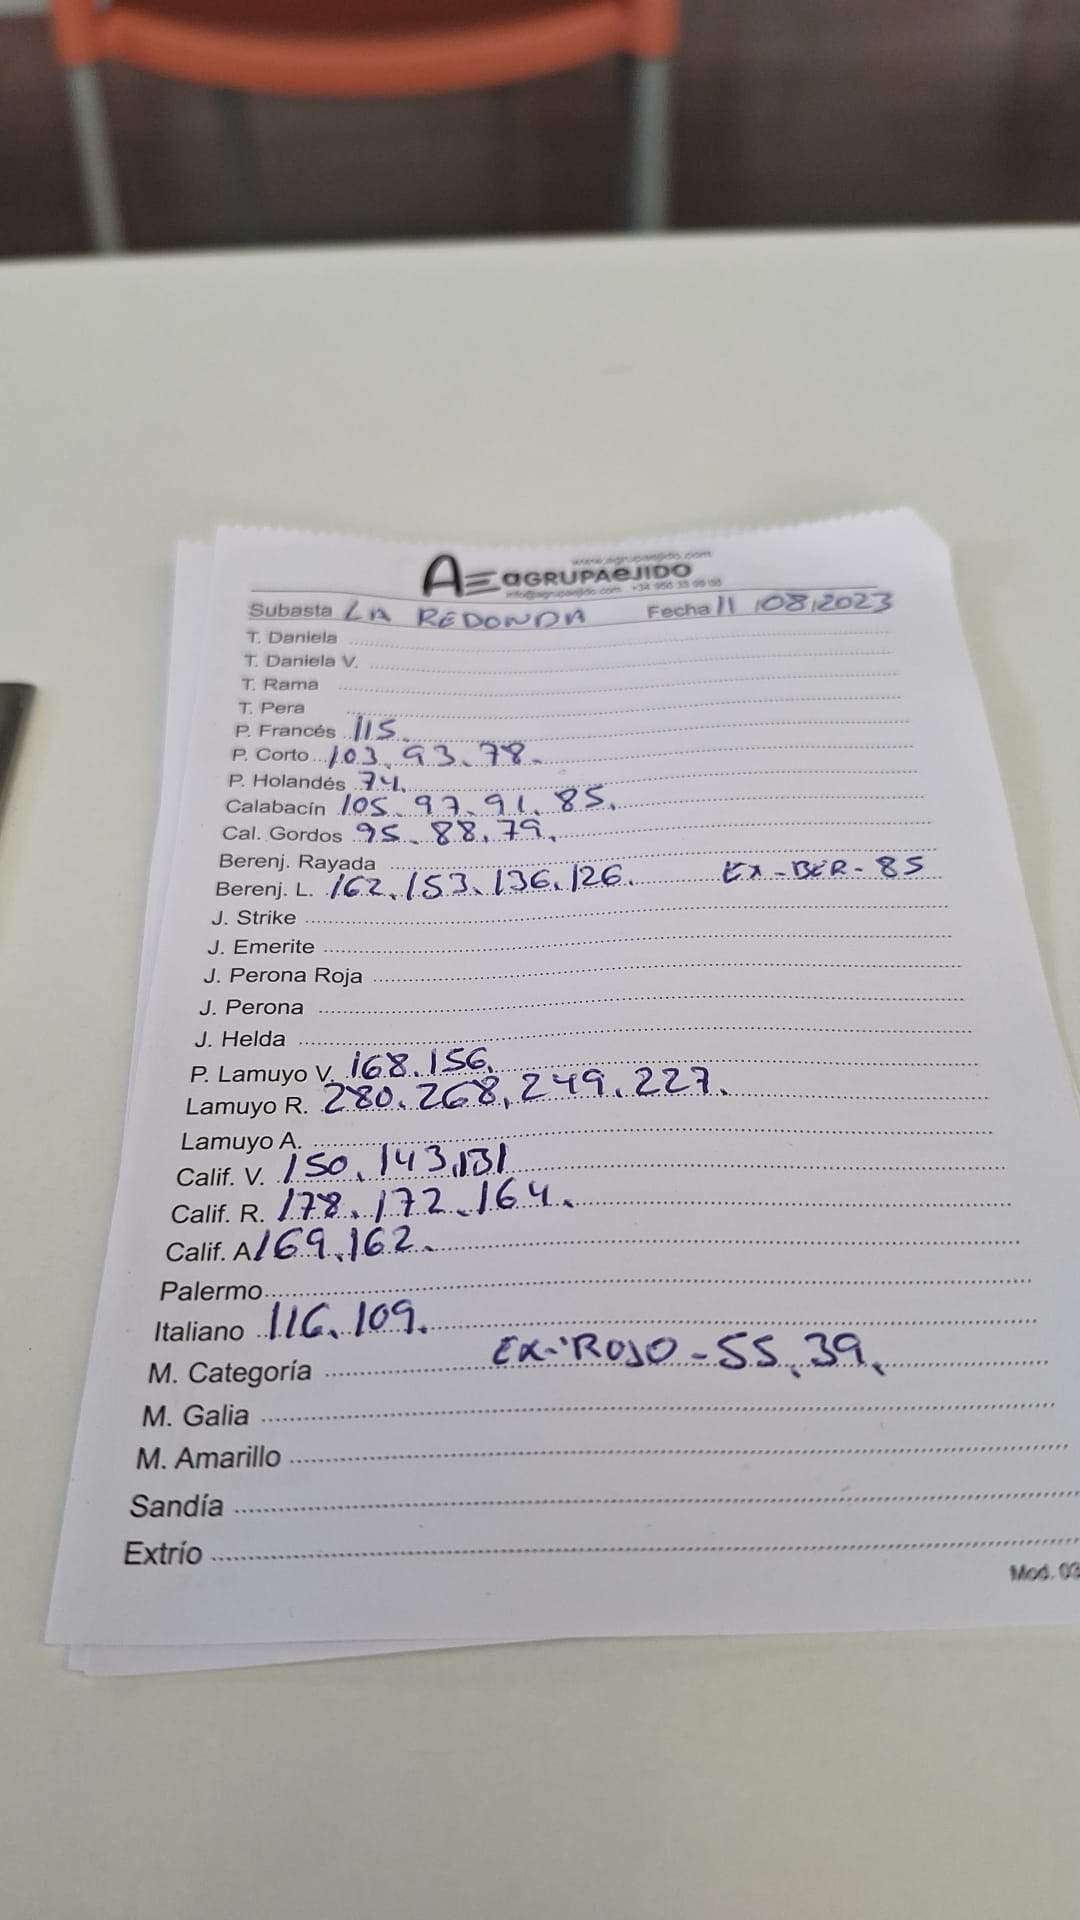 www.agrupaejido.com
AE aGRUPAeJIDO
info@agrupaejido.com +34 950 33 98 00
Subasta LA REDONDA Fecha 11/08/2023
T. Daniela
T. Daniela V.
T. Rama
T. Pera
P. Francés 115.
P. Corto 103. 93. 78.
P. Holandés 74.
Calabacín 105. 97. 91. 85.
Cal. Gordos 95. 88. 79.
Berenj. Rayada
Berenj. L. 162. 153. 136. 126. EX-BER-85
J. Strike
J. Emerite
J. Perona Roja
J. Perona
J. Helda
P. Lamuyo V. 168. 156.
Lamuyo R. 280. 268. 249. 227.
Lamuyo A.
Calif. V. 150. 143. 131
Calif. R. 178. 172. 164.
Calif. A 169. 162.
Palermo
Italiano 116. 109.
EX-ROJO-55. 39.
M. Categoría
M. Galia
M. Amarillo
Sandía
Extrío
Mod. 03